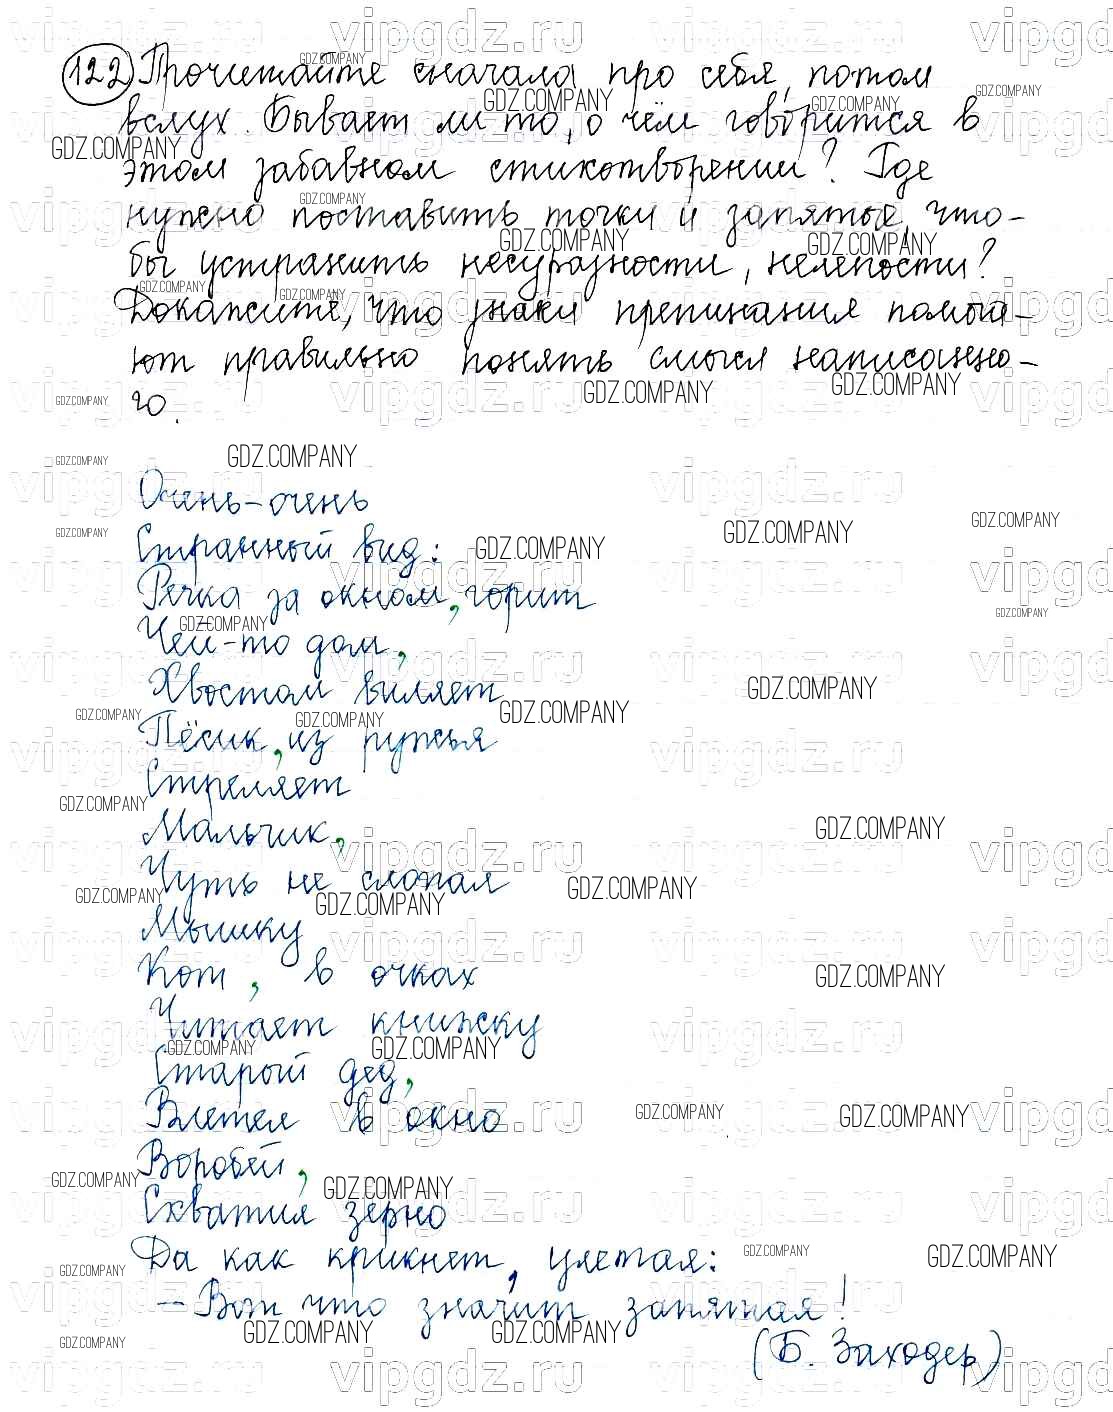 122 Прочитайте сначала про себя, потом
вслух. Бывает ли то, о чём говорится в
этом забавном стихотворении? Где
нужно поставить точки и запятые, что-
бы устранить несуразности, нелепости?
Докажите, что знаки препинания помога-
ют правильно понять смысл написанно-
го.
Очень-очень
Странный вид:
Речка за окном, горит
Чей-то дом,
Хвостом виляет
Пёсик, из ружья
Стреляет
Мальчик,
Чуть не слопал
Мышку
Кот, в очках
Читает книжку
Старый дед,
Влетел в окно
Воробей,
Схватил зерно
Да как крикнет, улетая:
- Вот что значит запятая!
(Б. Заходер)